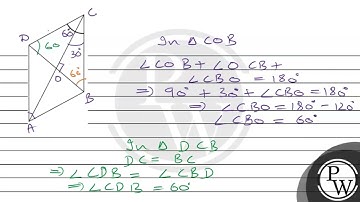 C
D
60
60°
30°
O
60°
B
A
In △ COB
∠COB + ∠OCB +
∠CBO = 180°
⇒ 90° + 30° + ∠CBO = 180°
⇒ ∠CBO = 180° - 120°
∠CBO = 60°
In △ DCB
DC = BC
⇒ ∠CDB = ∠CBD
⇒ ∠CDB = 60°
PW